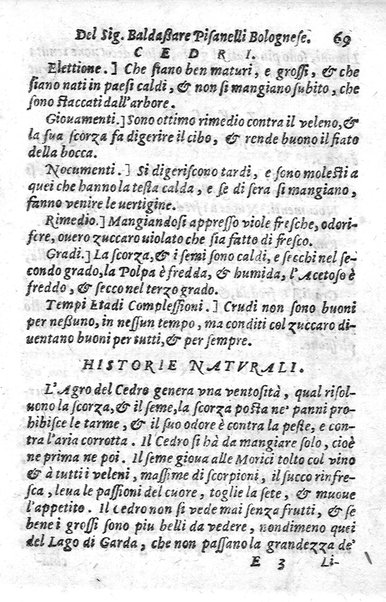 Del Sig. Baldaßare Pisanelli Bolognese. 69
CEDRI.
Elettione.] Che siano ben maturi, e grossi, & che
siano nati in paesi caldi, & non si mangiano subito, che
sono staccati dall'arbore.
Giouamenti.] Sono ottimo rimedio contra il veleno, &
la sua scorza fa digerire il cibo, & rende buono il fiato
della bocca.
Nocumenti.] Si digeriscono tardi, e sono molesti a
quei che hanno la testa calda, e se di sera si mangiano,
fanno venire le uertigine.
Rimedio.] Mangiandosi appresso viole fresche, odori-
fere, ouero zuccaro uiolato che sia fatto di fresco.
Gradi.] La scorza, & i semi sono caldi, e secchi nel se-
condo grado, la Polpa è fredda, & humida, l'Acetoso è
freddo, & secco nel terzo grado.
Tempi Etadi Complessioni.] Crudi non sono buoni
per neßuno, in nessun tempo, ma conditi col zuccaro di-
uentano buoni per tutti, & per sempre.
HISTORIE NATURALI.
L'Agro del Cedro genera vna ventosità, qual risol-
uono la scorza, & il seme, la scorza posta ne' panni pro-
hibisce le tarme, & il suo odore è contra la peste, e con-
tra l'aria corrotta. Il Cedro si hà da mangiare solo, cioè
ne prima ne poi. Il seme gioua alle Morici tolto col vino
& à tutti i veleni, massime di scorpioni, il succo rinfre-
sca, leua le passioni del cuore, toglie la sete, & muoue
l'appetito. Il Cedro non si vede mai senza frutti, & se
bene i grossi sono piu belli da vedere, nondimeno quei
del Lago di Garda, che non passano la grandezza de'
E 3 Li-